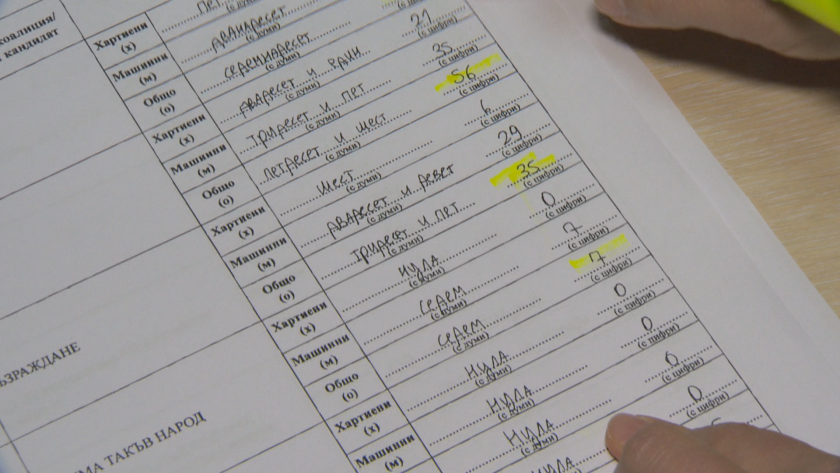 коалиция/
кандидат
Хартиени
(х)
Машинни
(м)
Общо
(о)
Хартиени
(х)
Машинни
(м)
Общо
(о)
Хартиени
(х)
Машинни
(м)
Общо
(о)
Хартиени
(х)
Машинни
(м)
Общо
(о)
Хартиени
(х)
Машинни
(м)
ЪЗРАЖДАНЕ
МА ТАКЪВ НАРОД
ПЕТ
ДВАНАДЕСЕТ
(с думи)
СЕДЕМНАДЕСЕТ
(с думи)
ДВАДЕСЕТ И ЕДНИ 21
(с думи) (с цифри)
ТРИДЕСЕТ И ПЕТ 35
(с думи) (с цифри)
ПЕТДЕСЕТ И ШЕСТ 56
(с думи) (с цифри)
ШЕСТ 6
(с думи) (с цифри)
ДВАДЕСЕТ И ДЕВЕТ 29
(с думи) (с цифри)
ТРИДЕСЕТ И ПЕТ 35
(с думи) (с цифри)
НУЛА 0
(с думи) (с цифри)
СЕДЕМ 7
(с думи) (с цифри)
СЕДЕМ 7
(с думи) (с цифри)
НУЛА 0
(с думи) (с цифри)
НУЛА 0
(с думи) (с цифри)
НУЛА 0
(с думи) (с цифри)
НУЛА 0
(с цифри)